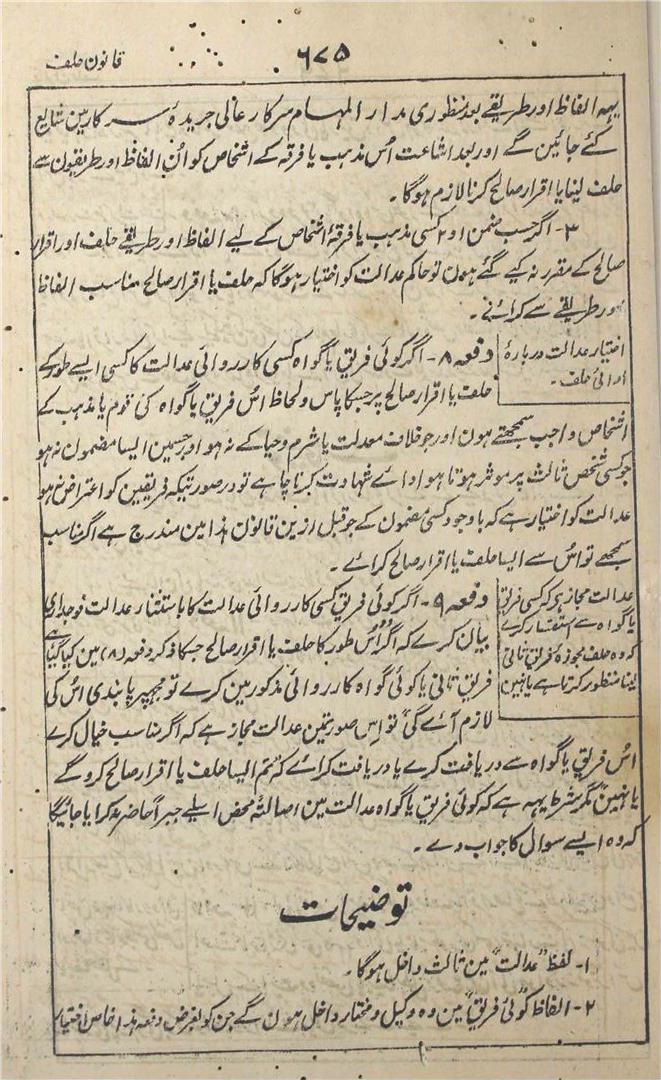 قانون حلف
۶۷۵
یہہ الفاظ اور طریقے بعد منظوری مدار المہام سرکار عالی جریدۂ سرکار مین شایع
کئے جائین گے اور بعد اشاعت اُس مذہب یا فرقہ کے اشخاص کو اُن الفاظ اور طریقون سے
حلف لینا یا اقرار صالح کرنا لازم ہوگا ۔
۳- اگر حسب ضمن ۱و۲ کسی مذہب یا فرقۂ اشخاص کے لیے الفاظ اور طریقے حلف اور اقرار
صالح کے مقرر نہ کیے گئے ہون تو حاکم عدالت کو اختیار ہوگا کہ حلف یا اقرار صالح مناسب الفاظ
اور طریقے سے کرائے ۔
اختیار عدالت دربارۂ
ادائی حلف ۔
دفعہ ۸- اگر کوئی فریق یا گواہ کسی کارروائی عدالت کا کسی ایسے طور کے
حلف یا اقرار صالح پر جسکا پاس ولحاظ اُس فریق یا گواہ کی قوم یا مذہب کے
اشخاص واجب سمجھتے ہون اور جو خلاف معدلت یا شرم وحیا کے نہ ہو اور جسمین ایسا مضمون نہ ہو
جو کسی شخص ثالث پر موثر ہوتا ہو اداے شہادت کرنا چاہے تو در صورتیکہ فریقین کو اعتراض نہو
عدالت کو اختیار ہے کہ باوجود کسی مضمون کے جو قبل ازین قانون ہذا مین مندرج ہے اگر مناسب
سمجھے تو اُس سے ایسا حلف یا اقرار صالح کرائے ۔
عدالت مجاز ہے کہ کسی فریق
یا گواہ سے استفسار کرے
کہ وہ حلف مجوزہ فریق ثانی
لینا منظور کرتا ہے یا نہین
دفعہ ۹- اگر کوئی فریق کسی کارروائی عدالت کا باستثناء عدالت فوجداری
بیان کرے کہ اگر اُس طور کا حلف یا اقرار صالح جسکا ذکر دفعہ (۸) مین کیا گیا ہے
فریق ثانی یا کوئی گواہ کارروائی مذکور مین کرے تو مجھپر پابندی اُس کی
لازم آئے گی تو اِس صورتمین عدالت مجاز ہے کہ اگر مناسب خیال کرے
اُس فریق یا گواہ سے دریافت کرے یا دریافت کرائے کہ تم ایسا حلف یا اقرار صالح کروگے
یا نہین مگر شرط یہہ ہے کہ کوئی فریق یا گواہ عدالت مین اصالتہً محض اسلیے جبراً حاضر نہ کرایا جائیگا
کہ وہ ایسے سوال کا جواب دے ۔
توضیحات
۱- لفظ "عدالت" مین ثالث داخل ہوگا ۔
۲- الفاظ "کوئی فریق" مین وہ وکیل ومختار داخل ہون گے جن کو بغرض دفعہ ہذا خاص اختیار